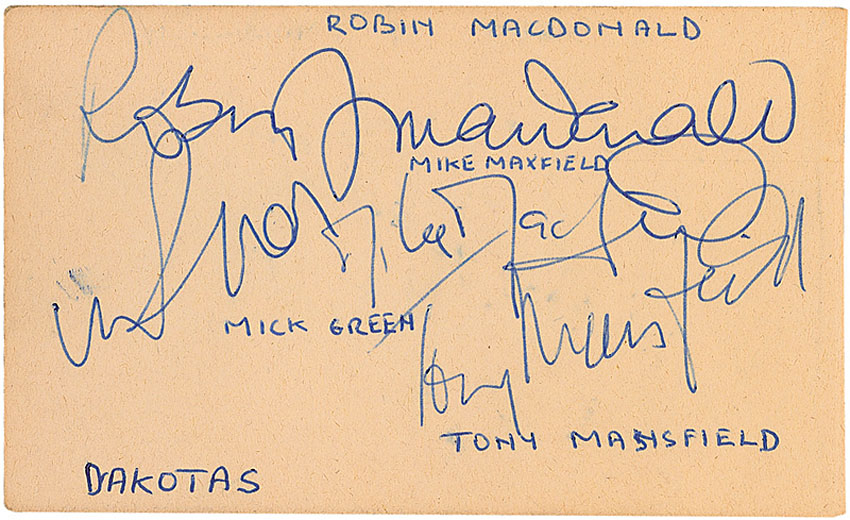 ROBIN MACDONALD
Robin Macdonald
MIKE MAXFIELD
Mike Maxfield
MICK GREEN
Tony Mansfield
TONY MANSFIELD
DAKOTAS